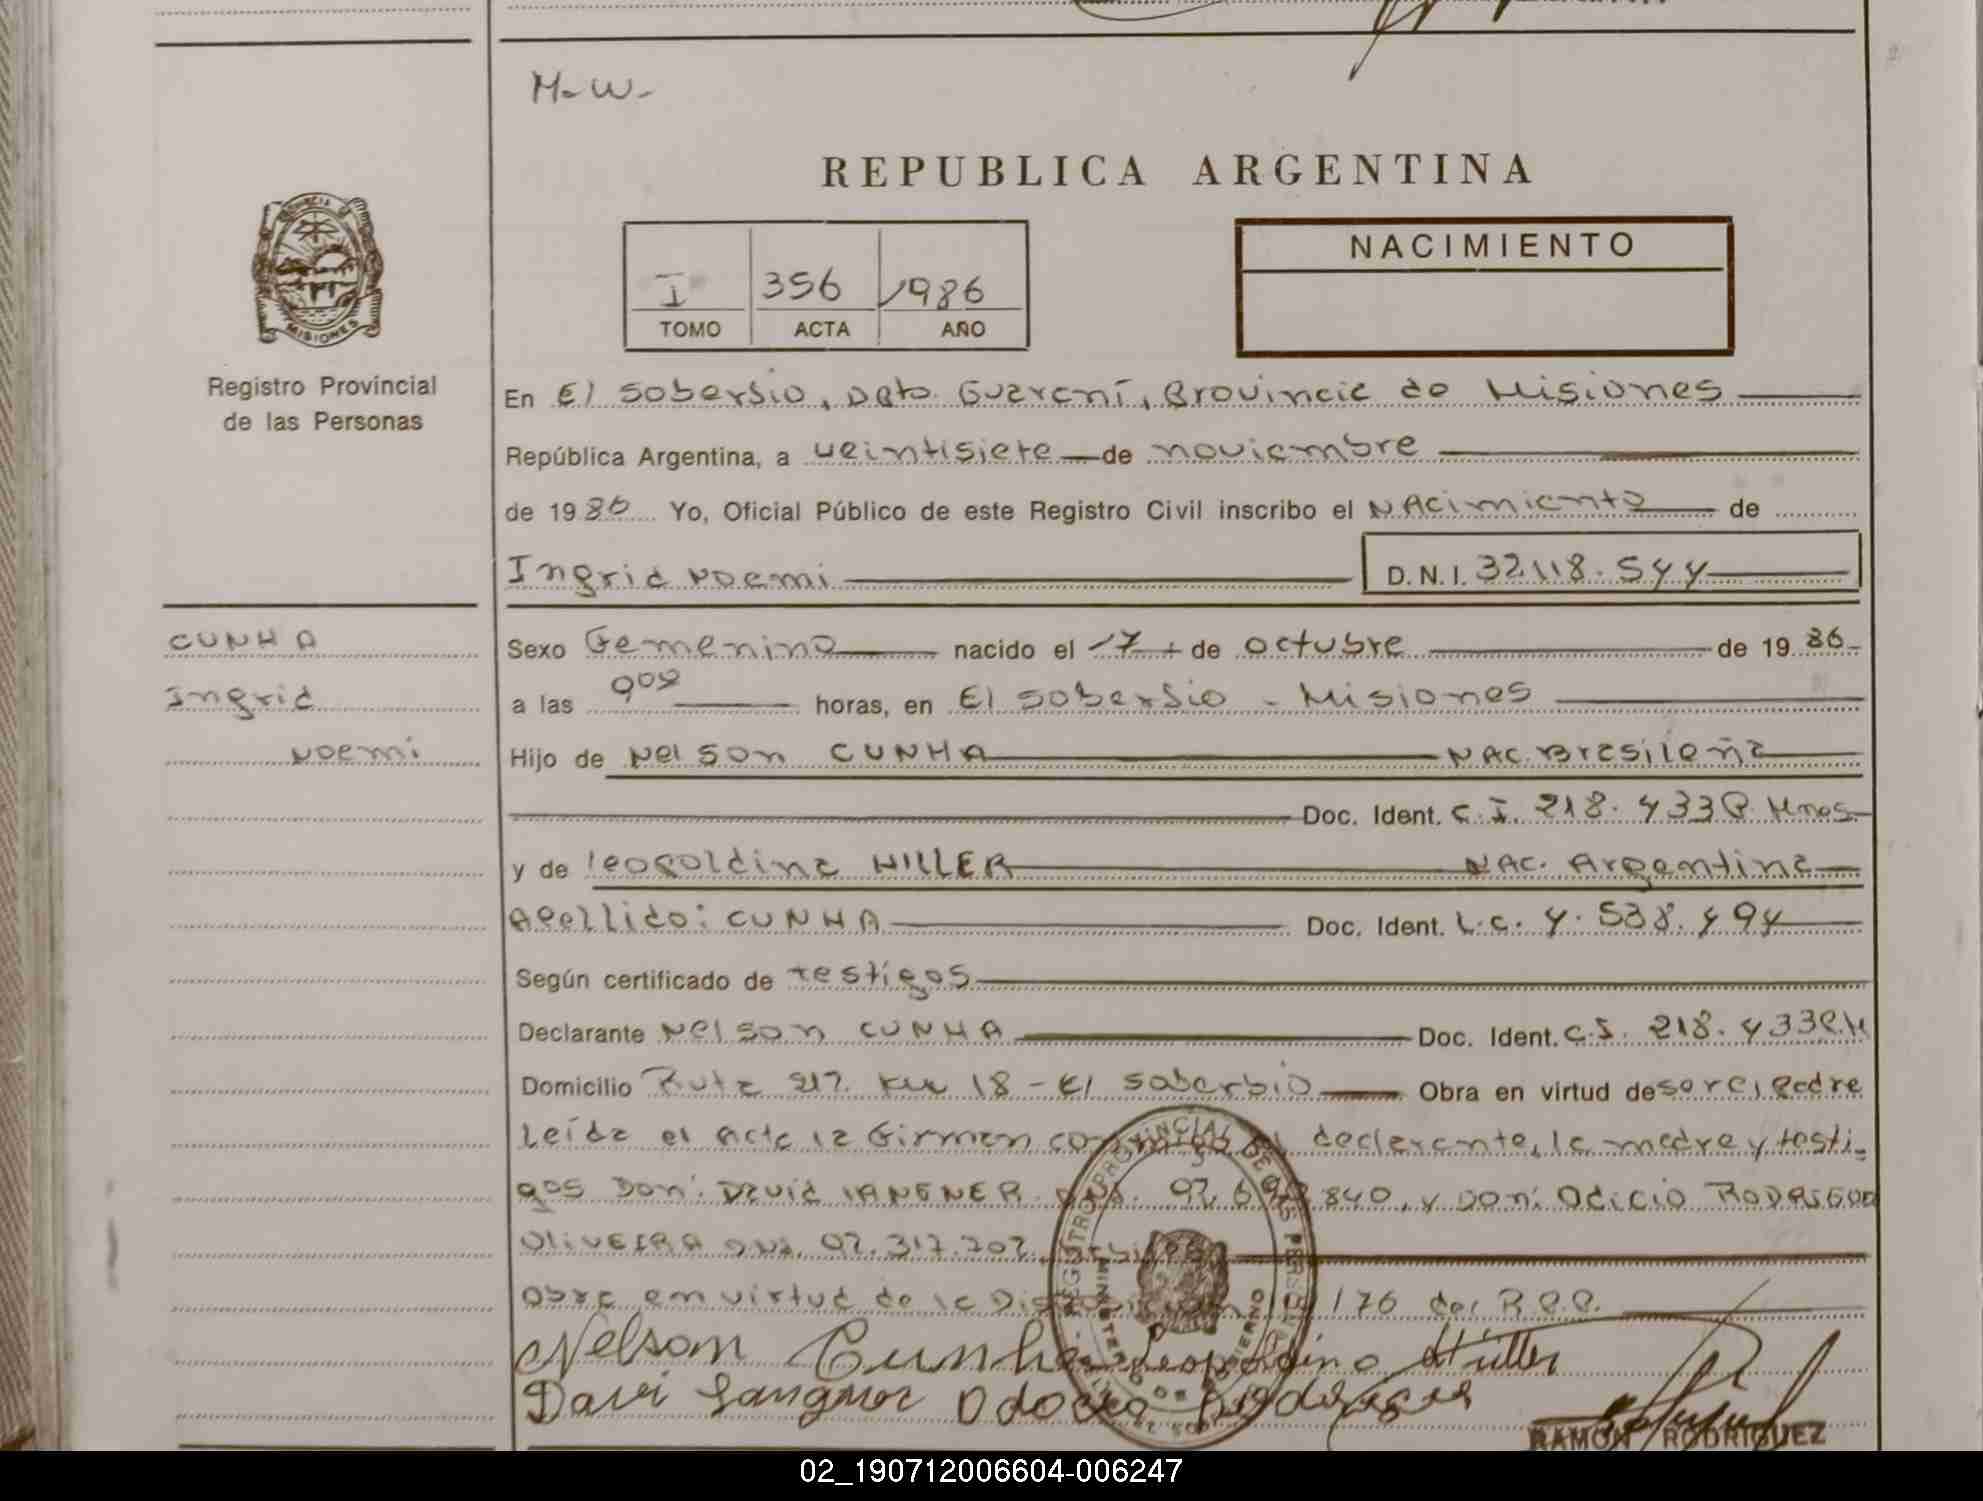 M. W.
REPUBLICA ARGENTINA
NACIMIENTO
I 356 1986
TOMO ACTA AÑO
PROVINCIA DE
MISIONES
Registro Provincial
de las Personas
En El Soberbio, Dpto. Guaraní, Provincia de Misiones
República Argentina, a veintisiete de noviembre
de 1986 Yo, Oficial Público de este Registro Civil inscribo el NAcimiento de
Ingrid Noemi D.N.I. 32.118.544
CUNHA
Ingrid
Noemi
Sexo Femenino nacido el 17 de octubre de 1986
a las 9 horas, en El Soberbio - Misiones
Hijo de Nelson CUNHA NAC. Brasileña
Doc. Ident. C.I. 218.433 P. Mnes.
y de leopoldina HILLER NAC. Argentina
Apellido: CUNHA Doc. Ident. L.C. 4.538.494
Según certificado de testigos
Declarante Nelson CUNHA Doc. Ident. C.I. 218.433 P.M
Domicilio Ruta 217. Km 18 - El Soberbio Obra en virtud de ser el padre
Leída el acta la firman conmigo el declarante, la madre y testi-
gos Don: David LANGNER 840, y Don: Odicio RODRIGUE
OLIVEIRA DNI. 92.317.702
Obra en virtud de la 176 del R.P.P.
Nelson Cunha Leopoldina Hiller
Davi Langner Rodrigues
REGISTRO PROVINCIAL DE LAS PERSONAS
MINISTERIO DE GOBIERNO
RAMON RODRIGUEZ
02_190712006604-006247